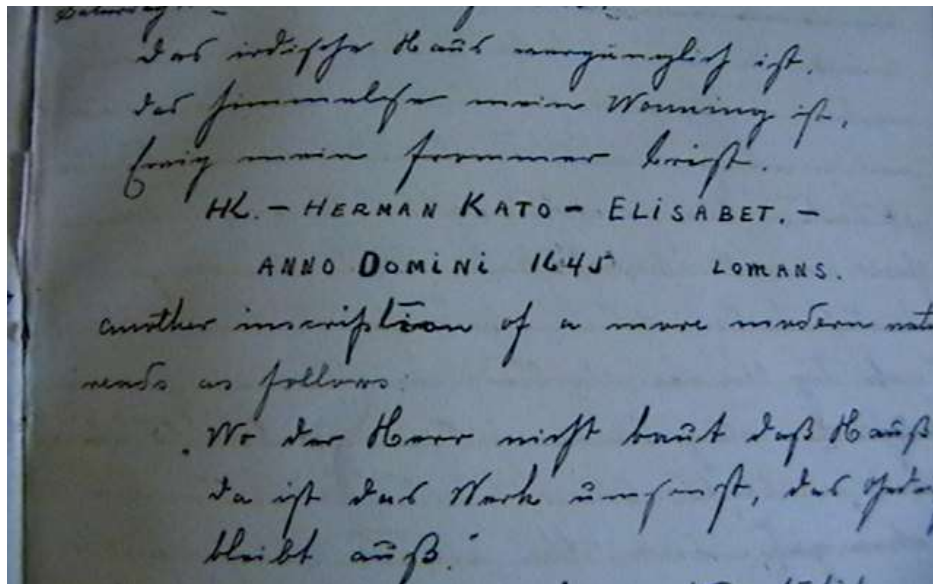 Das irdische Haus vergänglich ist.
das himmelse mein Wonning ist,
Ewig mein frommer Krist.
HK. – HERMAN KATO – ELISABET. –
ANNO DOMINI 1645 LOMANS.
another inscription of a more modern
reads as follows:
"Wo der Herr nicht baut daß Hauß
da ist das Werk umsonst, das
bleibt auß."